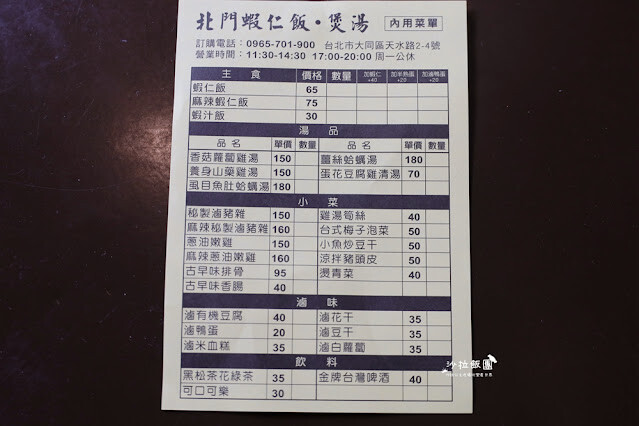 北門蝦仁飯・煲湯 內用菜單
訂購電話：0965-701-900 台北市大同區天水路2-4號
營業時間：11:30-14:30 17:00-20:00 周一公休
主食 價格 數量 加蝦仁+40 加半熟蛋+20 加滷鴨蛋+20
蝦仁飯 65
麻辣蝦仁飯 75
蝦汁飯 30
湯品
品名 單價 數量 品名 單價 數量
香菇蘿蔔雞湯 150 薑絲蛤蠣湯 180
養身山藥雞湯 150 蛋花豆腐雞清湯 70
虱目魚肚蛤蠣湯 180
小菜
秘製滷豬雜 150 雞湯筍絲 40
麻辣秘製滷豬雜 160 台式梅子泡菜 50
蔥油嫩雞 150 小魚炒豆干 50
麻辣蔥油嫩雞 160 涼拌豬頭皮 50
古早味排骨 95 燙青菜 40
古早味香腸 40
滷味
滷有機豆腐 40 滷花干 35
滷鴨蛋 20 滷豆干 35
滷米血糕 35 滷白蘿蔔 35
飲料
黑松茶花綠茶 35 金牌台灣啤酒 40
可口可樂 30
沙拉飯團